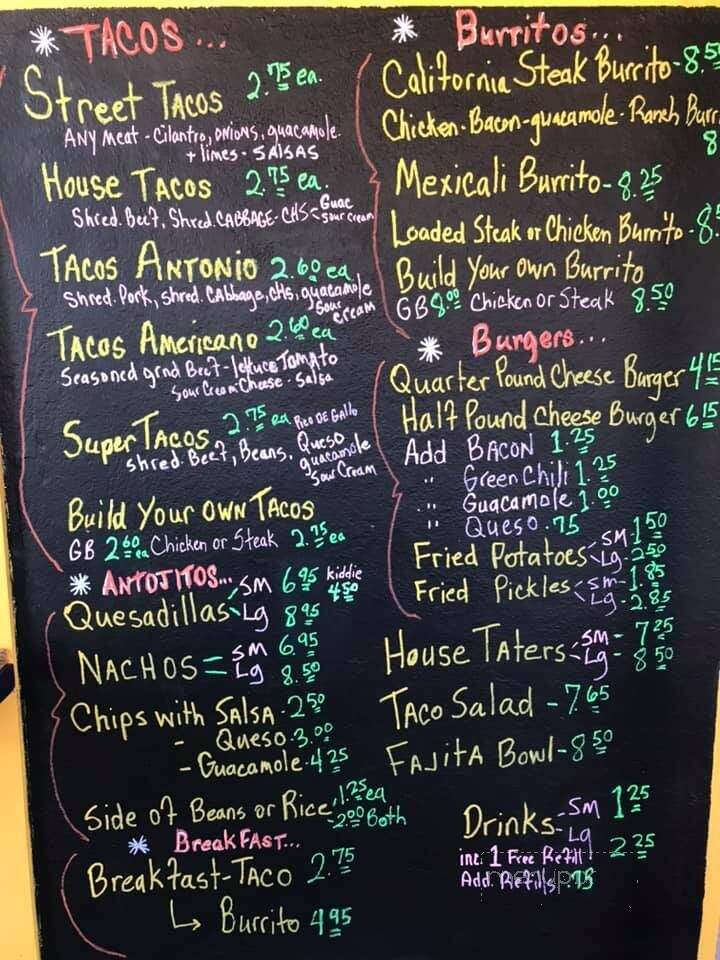 * TACOS...
Street TACOS 2.75 ea.
ANY Meat - Cilantro, ONIONS, guacamole
+ limes - SALSAS
House TACOS 2.75 ea.
Shred. Beef, Shred. CABBAGE - CHS - Guac
Sour cream
TACOS ANTONIO 2.60 ea
Shred. Pork, shred. CAbbage, CHS, guacamole
Sour
cream
TACOS Americano 2.60 ea
Seasoned grnd Beef - lettuce TOMATO
Sour Cream Cheese - Salsa
Super TACOS 2.75 ea Pico DE GAllo
shred. Beef, Beans, Queso
guacamole
Sour Cream
Build Your OWN TACOS
GB 2.60 ea Chicken or Steak 2.75 ea
* ANTOJITOS...
Quesadillas SM 6.95 kiddie 4.50
Lg 8.95
NACHOS = SM 6.95
Lg 8.50
Chips with SALSA - 2.50
- Queso - 3.00
- Guacamole - 4.25
Side of Beans or Rice 1.25 ea
2.00 Both
* BreakFAST...
Breakfast - TACO 2.75
Burrito 4.95
* Burritos...
California Steak Burrito - 8.50
Chicken - Bacon - guacamole - Ranch Burr
8
Mexicali Burrito - 8.25
Loaded Steak or Chicken Burrito - 8.
Build Your own Burrito
GB 8.00 Chicken or Steak 8.50
* Burgers...
Quarter Pound Cheese Burger 4.15
Half Pound Cheese Burger 6.15
Add BACON 1.25
" Green Chili 1.25
" Guacamole 1.00
" Queso .75
Fried Potatoes SM 1.50
Lg - 2.50
Fried Pickles sm - 1.85
Lg - 2.85
House Taters SM - 7.25
Lg - 8.50
Taco Salad - 7.65
FAJITA Bowl - 8.50
Drinks - SM 1.25
Lg 2.25
inc. 1 Free Refill
Add. Refills .75